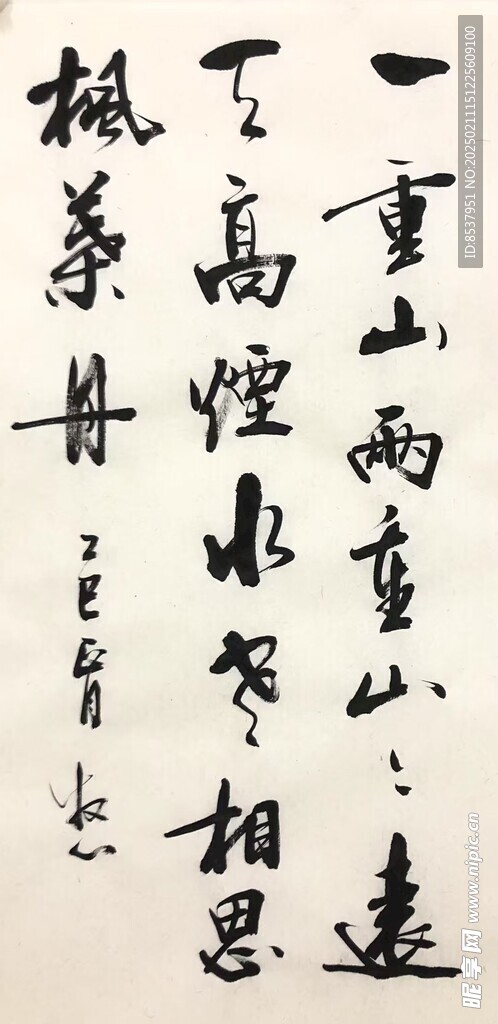 一重山兩重山〻遠
天高煙水寒相思
楓葉丹
乙巳正月
ID:8537951 NO:20250211151225609100
昵享网 www.nipic.cn